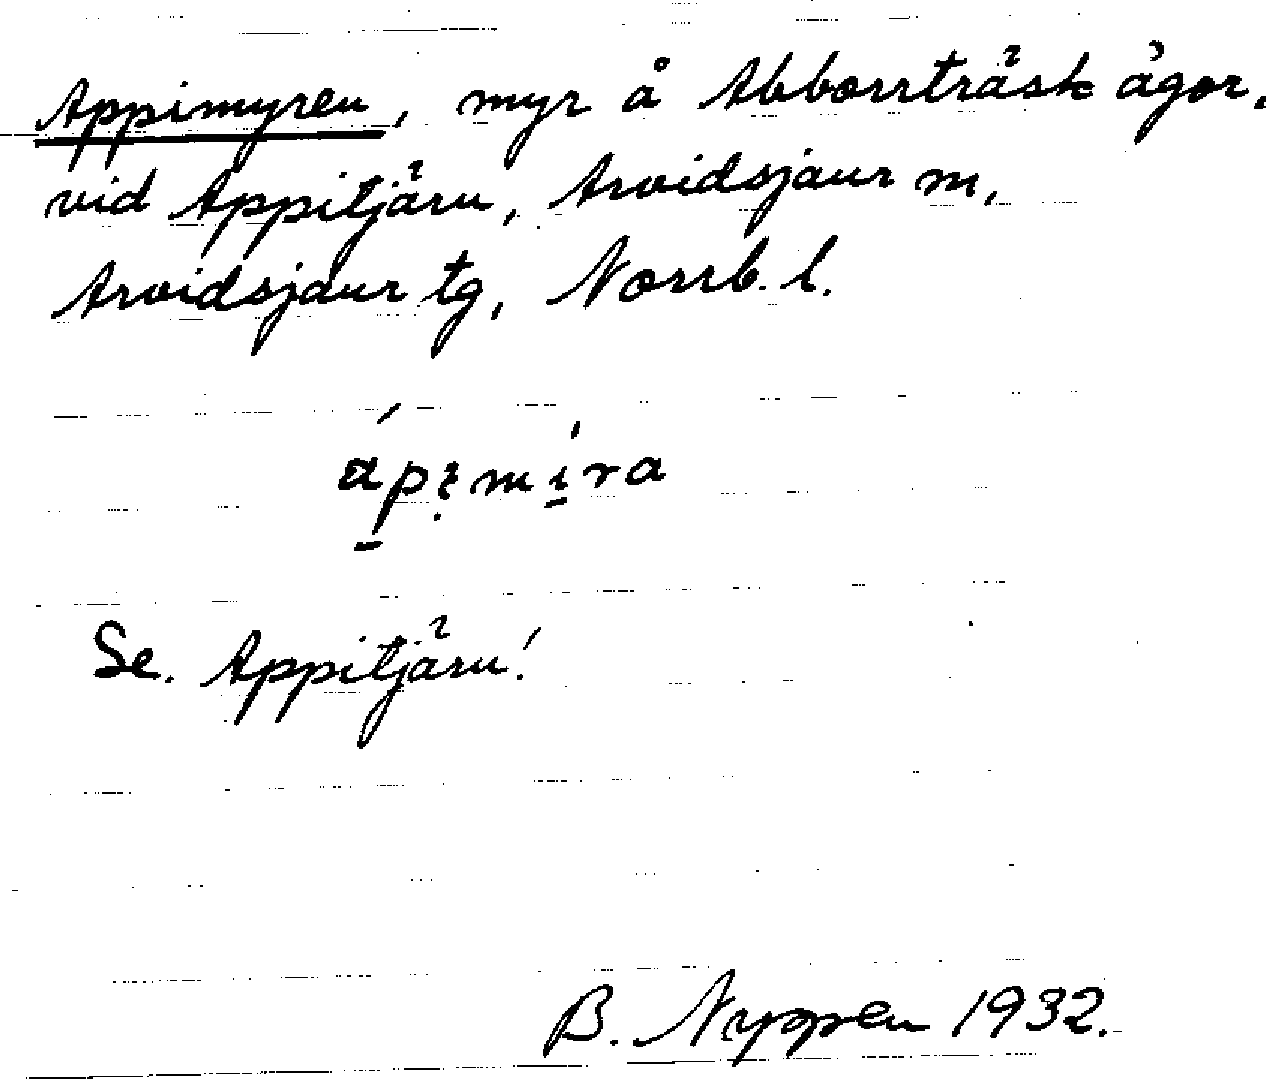 Appimyren, myr å Abborrträsk ägor,
vid Appitjärn, Arvidsjaur m,
Arvidsjaur tg, Norrb. l.
Se. Appitjärn!
B. Nyppen 1932.